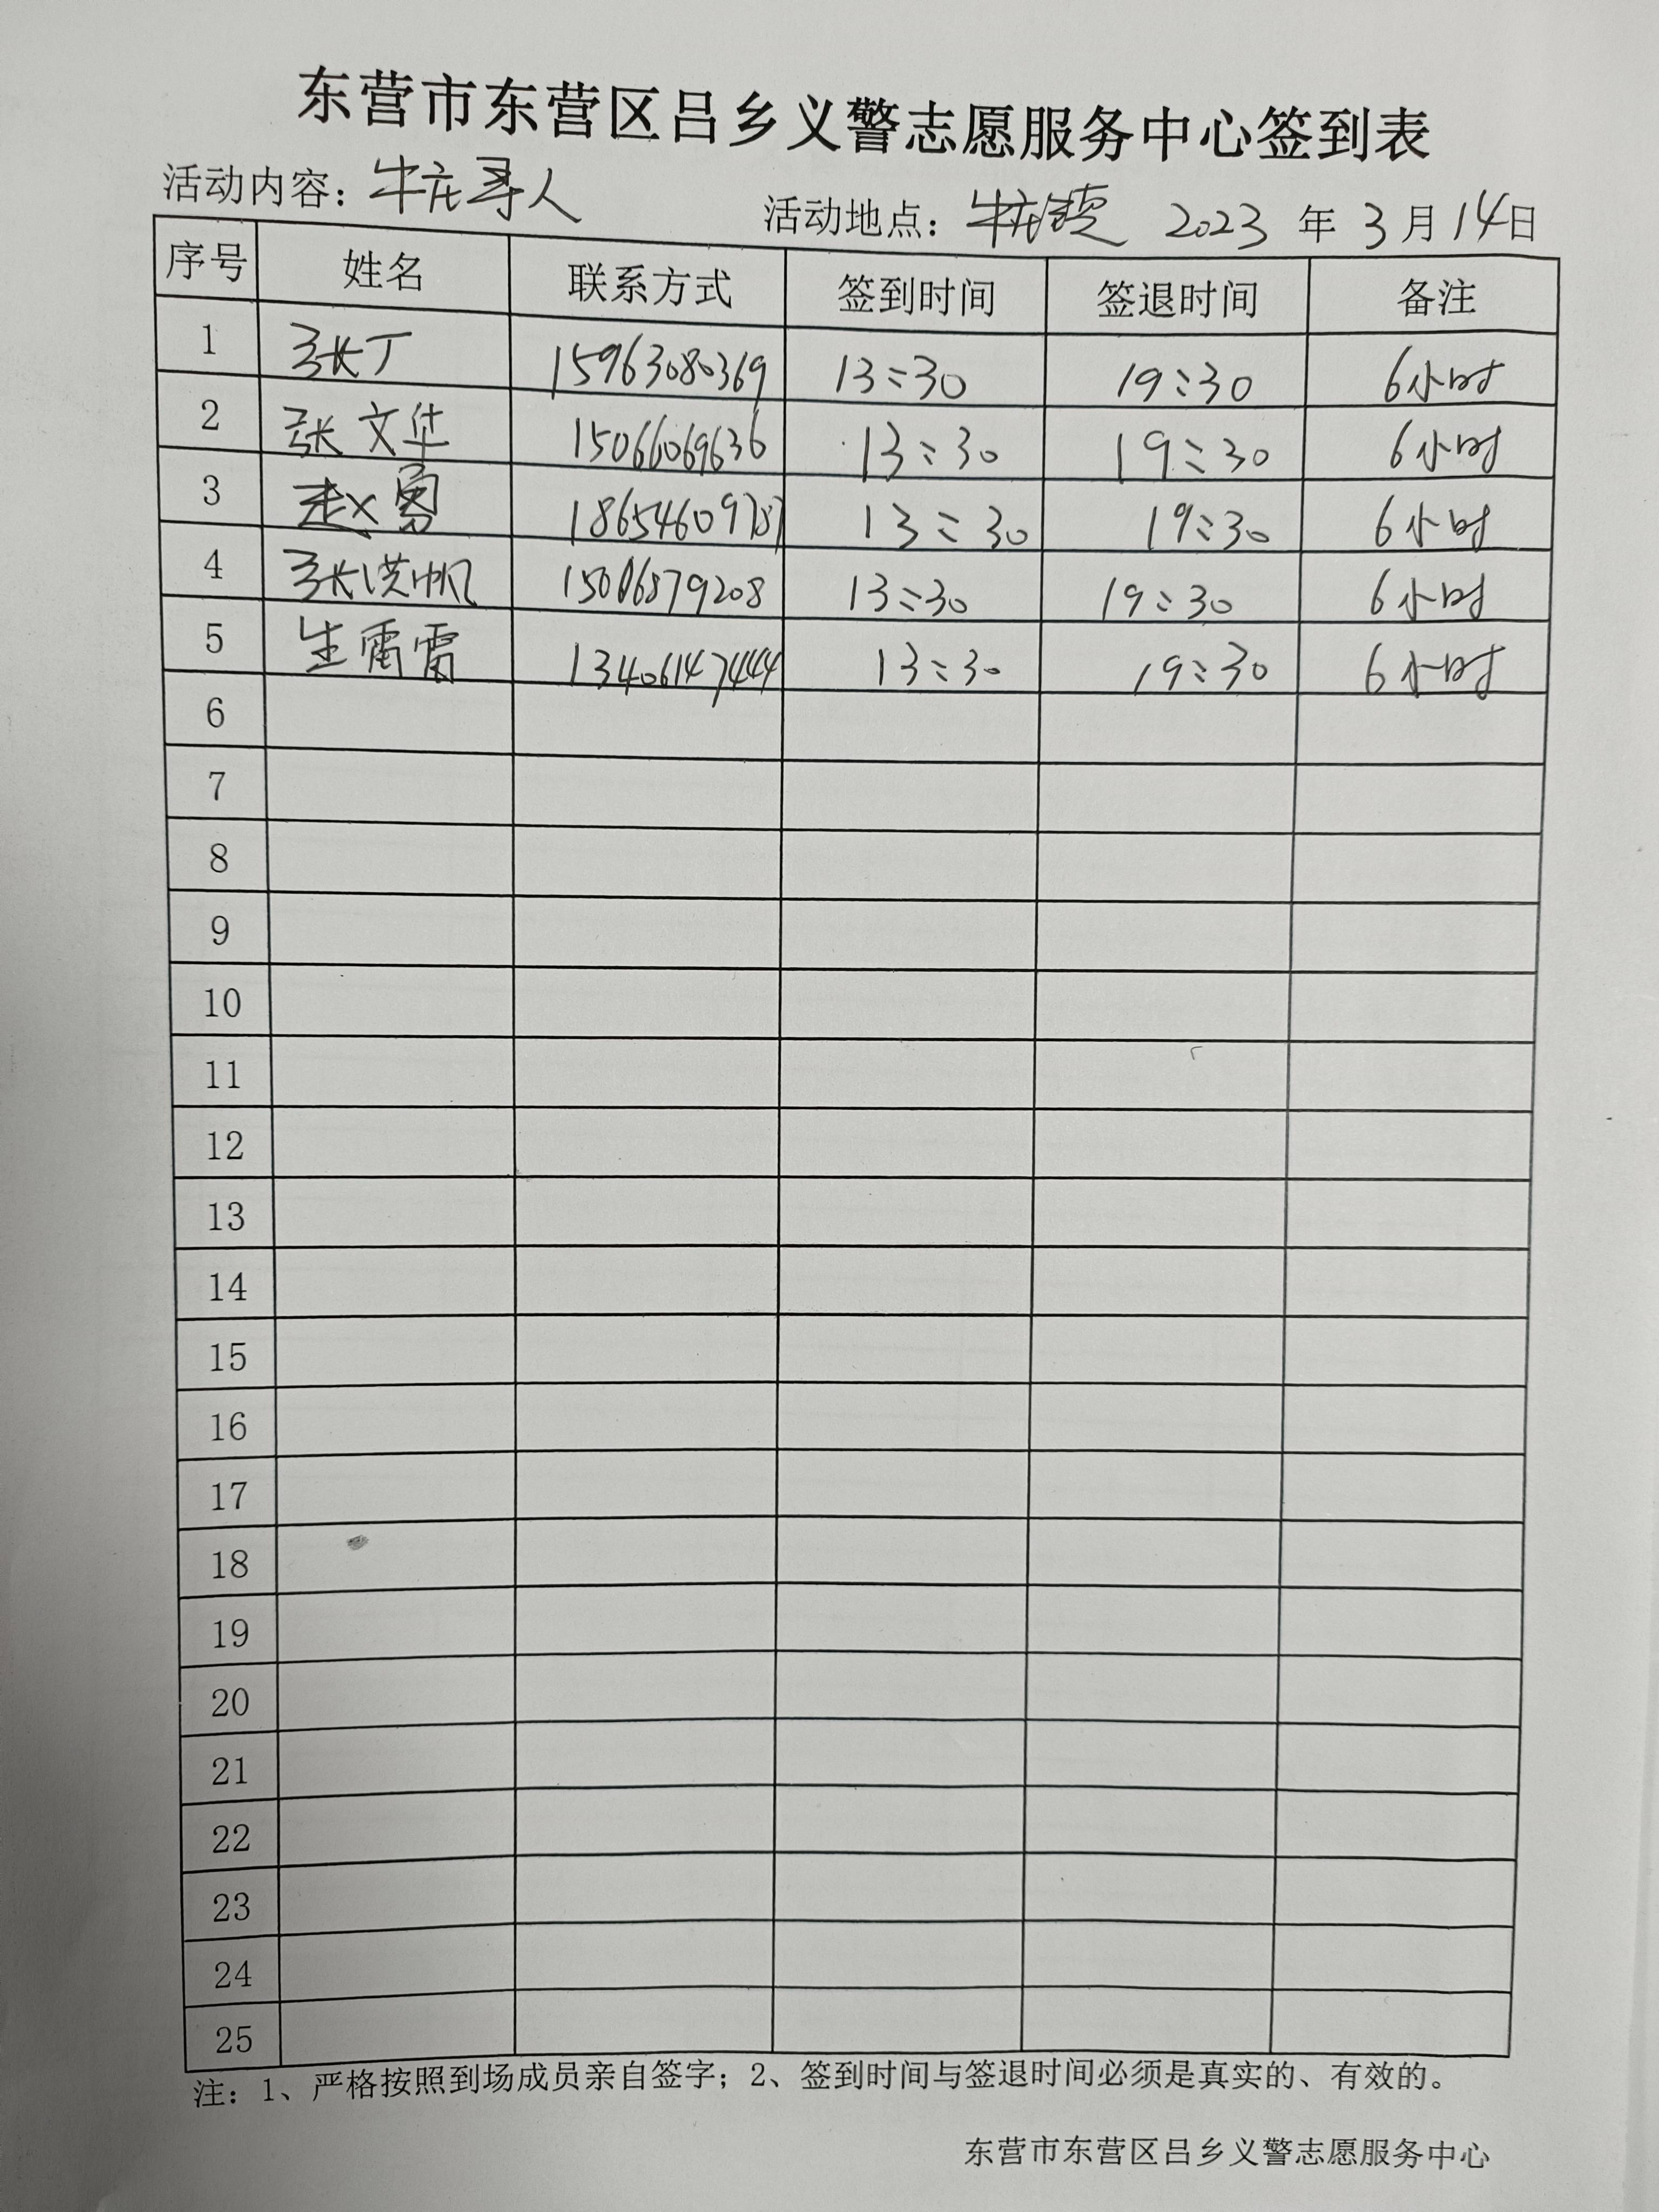 东营市东营区吕乡义警志愿服务中心签到表
活动内容：牛庄寻人 活动地点：牛庄镇 2023 年 3 月 14 日
序号 姓名 联系方式 签到时间 签退时间 备注
1 张丁 15963080369 13:30 19:30 6小时
2 张文华 15066069636 13:30 19:30 6小时
3 赵勇 13:30 19:30 6小时
4 张洪帆 15006879208 13:30 19:30 6小时
5 生雷雷 13406147444 13:30 19:30 6小时
6
7
8
9
10
11
12
13
14
15
16
17
18
19
20
21
22
23
24
25
注：1、严格按照到场成员亲自签字；2、签到时间与签退时间必须是真实的、有效的。
东营市东营区吕乡义警志愿服务中心